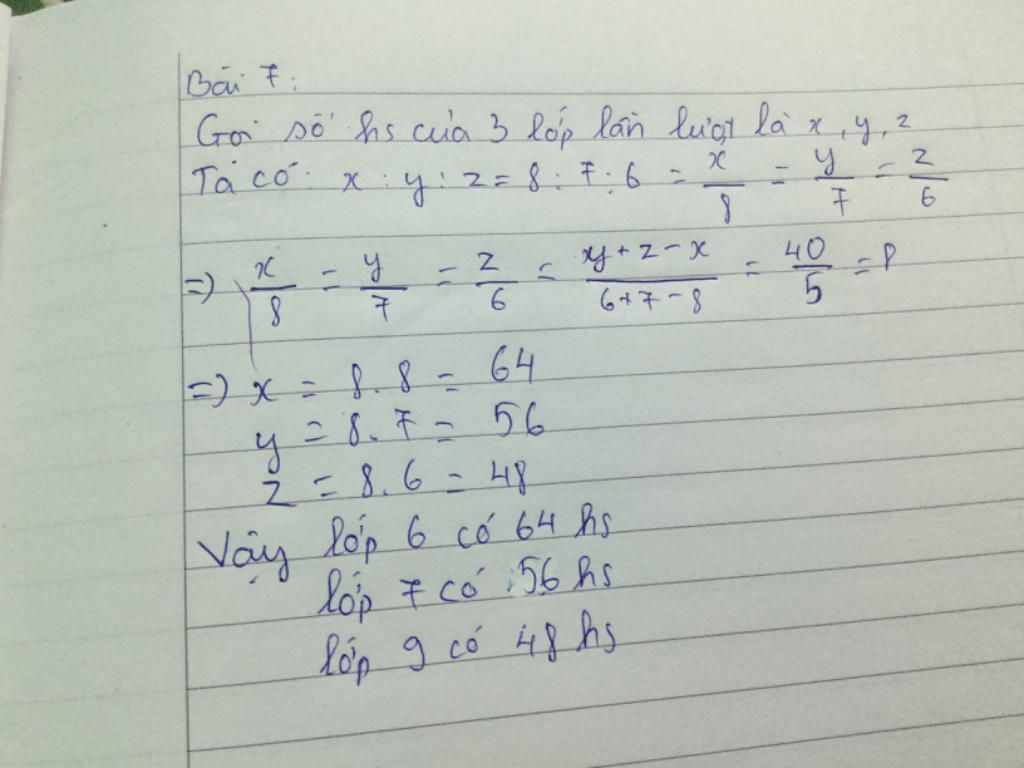 Bài 7:
Gọi số hs của 3 lớp lần lượt là x, y, z
Ta có: x : y : z = 8 : 7 : 6 = x/8 = y/7 = z/6
=) x/8 = y/7 = z/6 = (xy + z - x)/(6 + 7 - 8) = 40/5 = 8
=) x = 8.8 = 64
y = 8.7 = 56
z = 8.6 = 48
Vậy lớp 6 có 64 hs
lớp 7 có 56 hs
lớp 9 có 48 hs